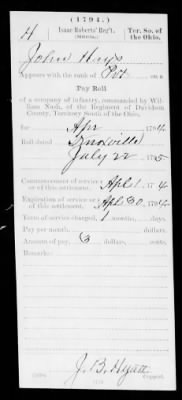 (1794.)
H
Isaac Roberts' Reg't.
(MILITIA.)
Ter. So. of
the Ohio.
John Hays
Appears with the rank of Pvt. on a
Pay Roll
of a company of infantry, commanded by Wil-
liam Nash, of the Regiment of Davidson
County, Territory South of the Ohio,
for Apr 1794.
Roll dated Knoxville
July 22 1795
Commencement of service
or of this settlement. Apl. 1, 1794
Expiration of service or
of this settlement. Apl. 30, 1794
Term of service charged, 1 months, days.
Pay per month dollars.
Amount of pay, 3 dollars, cents.
Remarks:
J. B. Hyatt
Copyist.